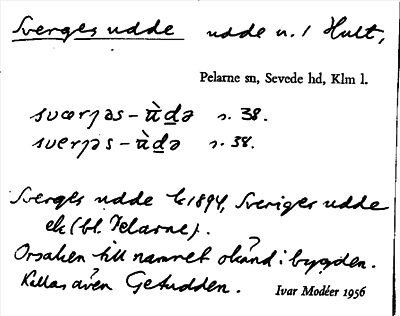 Sverges udde udde n. / Hult,
Pelarne sn, Sevede hd, Klm l.
sværjəs - ù̀də s. 38.
sverjəs - ù̀də s. 38.
Sverges udde k 1894, Sveriges udde
ek (bl. Pelarne).
Orsaken till namnet okänd i bygden.
Kallas även Getudden.
Ivar Modéer 1956